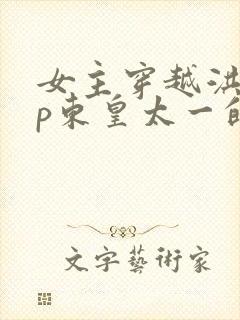 女主穿越洪
p东皇太一的
文字藝術家